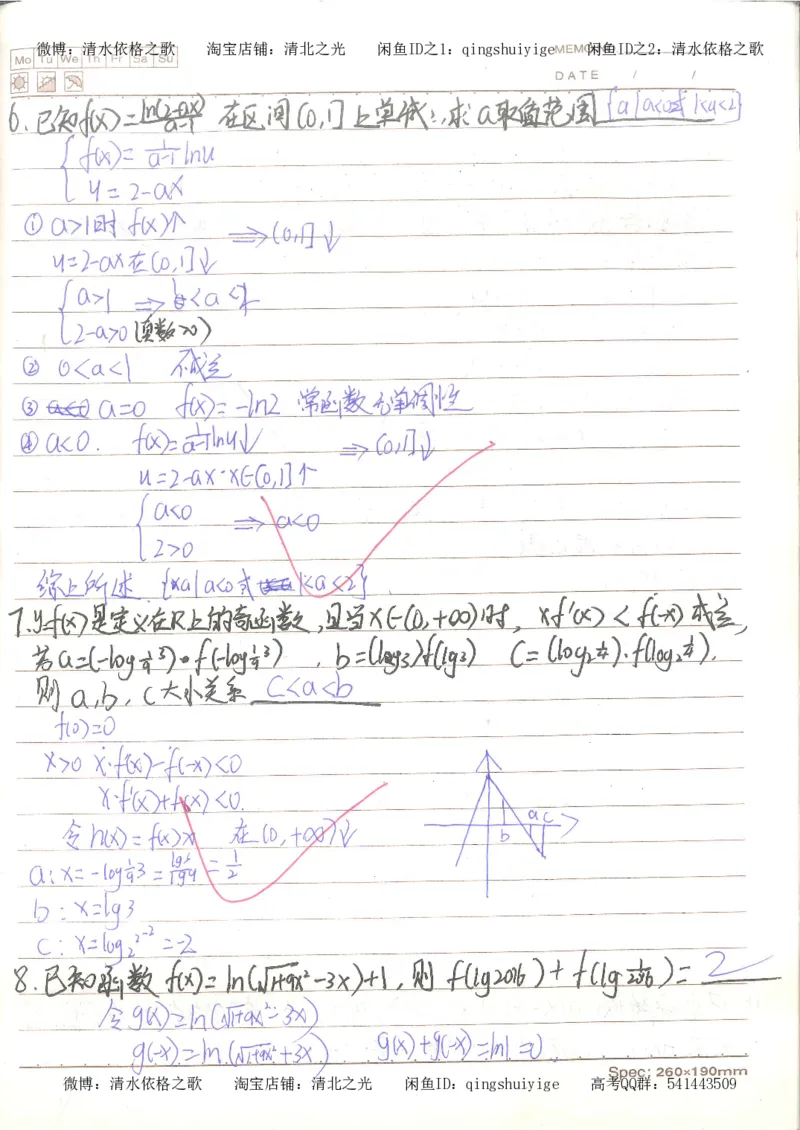 微博：清水依格之歌 淘宝店铺：清北之光 闲鱼ID之1：qingshuiyige 闲鱼ID之2：清水依格之歌
MEMO
Mo Tu We Th Fr Sa Su
DATE / /
6.已知f(x)=ln(2-ax)/(a-1) 在区间(0,1]上单减,求a取值范围{a|a<0或1<a<2}
{f(x)=1/(a-1) lnu
u=2-ax
①a>1时 f(x)↑ ⇒(0,1]↓
u=2-ax在(0,1]↓
{a>1 ⇒ 1<a<2
2-a>0(真数>0)
② 0<a<1 不成立
③ a=0 f(x)=-ln2 常函数无单调性
④a<0. f(x)=1/(a-1) lnu↓ ⇒(0,1]↓
u=2-ax x∈(0,1]↑
{a<0 ⇒a<0
2>0
综上所述 {a|a<0或1<a<2}
7.y=f(x)是定义在R上的奇函数,且当x∈(0,+∞)时, xf'(x)<f(-x)成立,
若a=(-log₁⁄₉3)·f(-log₁⁄₉3) , b=(lg3)f(lg3) C=(log₂¼)·f(log₂¼),
则a,b,c大小关系 C<a<b
f(0)=0
x>0 x·f'(x)-f(-x)<0
x·f'(x)+f(x)<0.
令h(x)=f(x)x 在(0,+∞)↓
a c
b
a:x=-log₁⁄₉3=lg3/lg9=1/2
b:x=lg3
c:x=log₂2⁻²=-2
8.已知函数f(x)=ln(√1+9x²-3x)+1,则f(lg2016)+f(lg 1/2016)=2
令g(x)=ln(√1+9x²-3x)
g(-x)=ln(√1+9x²+3x) g(x)+g(-x)=ln1=0
Spec: 260×190mm
微博：清水依格之歌 淘宝店铺：清北之光 闲鱼ID：qingshuiyige 高考QQ群：541443509